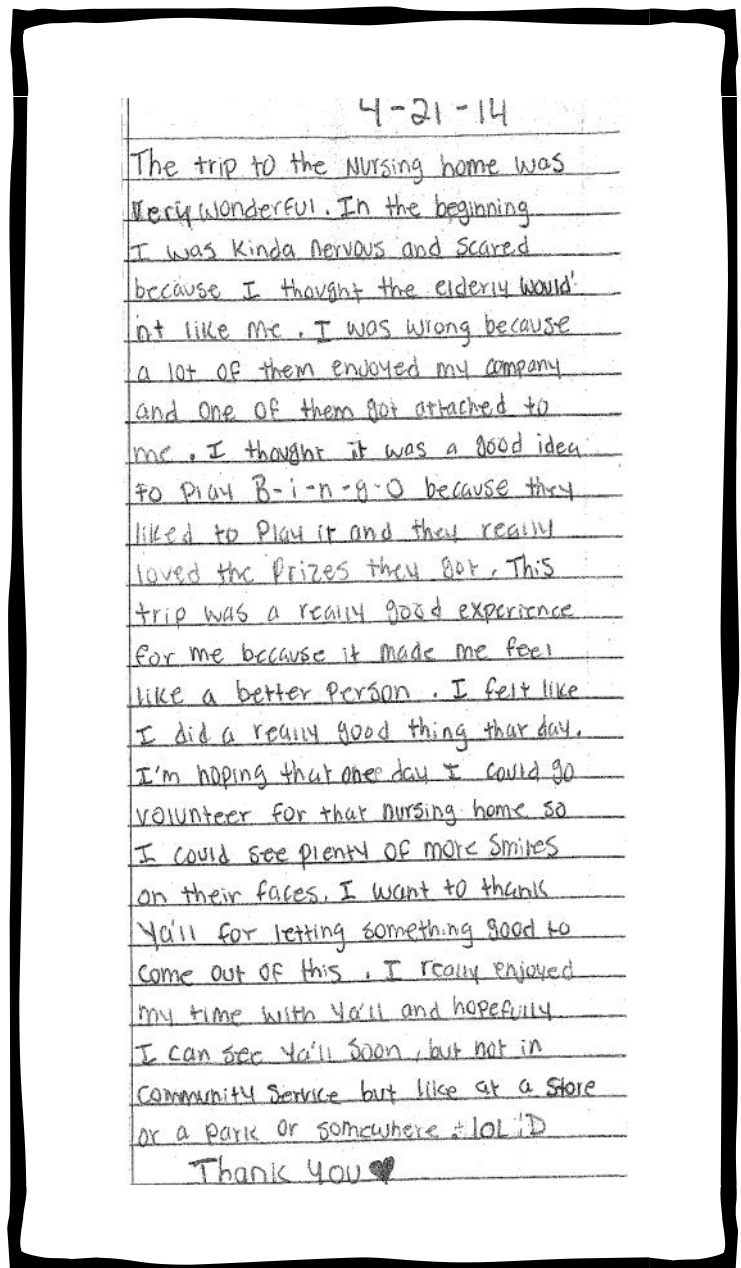 4-21-14
The trip to the Nursing home was
Very wonderful. In the beginning
I was Kinda nervous and scared
because I thought the elderly would'
nt like me. I was wrong because
a lot of them enjoyed my company
and one of them got attached to
me. I thought it was a good idea
to play B-i-n-g-O because they
liked to Play it and they really
loved the Prizes they got. This
trip was a really good experience
for me because it made me feel
like a better Person. I felt like
I did a really good thing that day.
I'm hoping that one day I could go
volunteer for that nursing home so
I could see plenty of more smiles
on their faces. I want to thank
Ya'll for letting something good to
come out of this. I really enjoyed
my time with Ya'll and hopefully
I can see Ya'll soon, but not in
Community Service but like at a Store
or a park or somewhere. lOL :D
Thank you♥